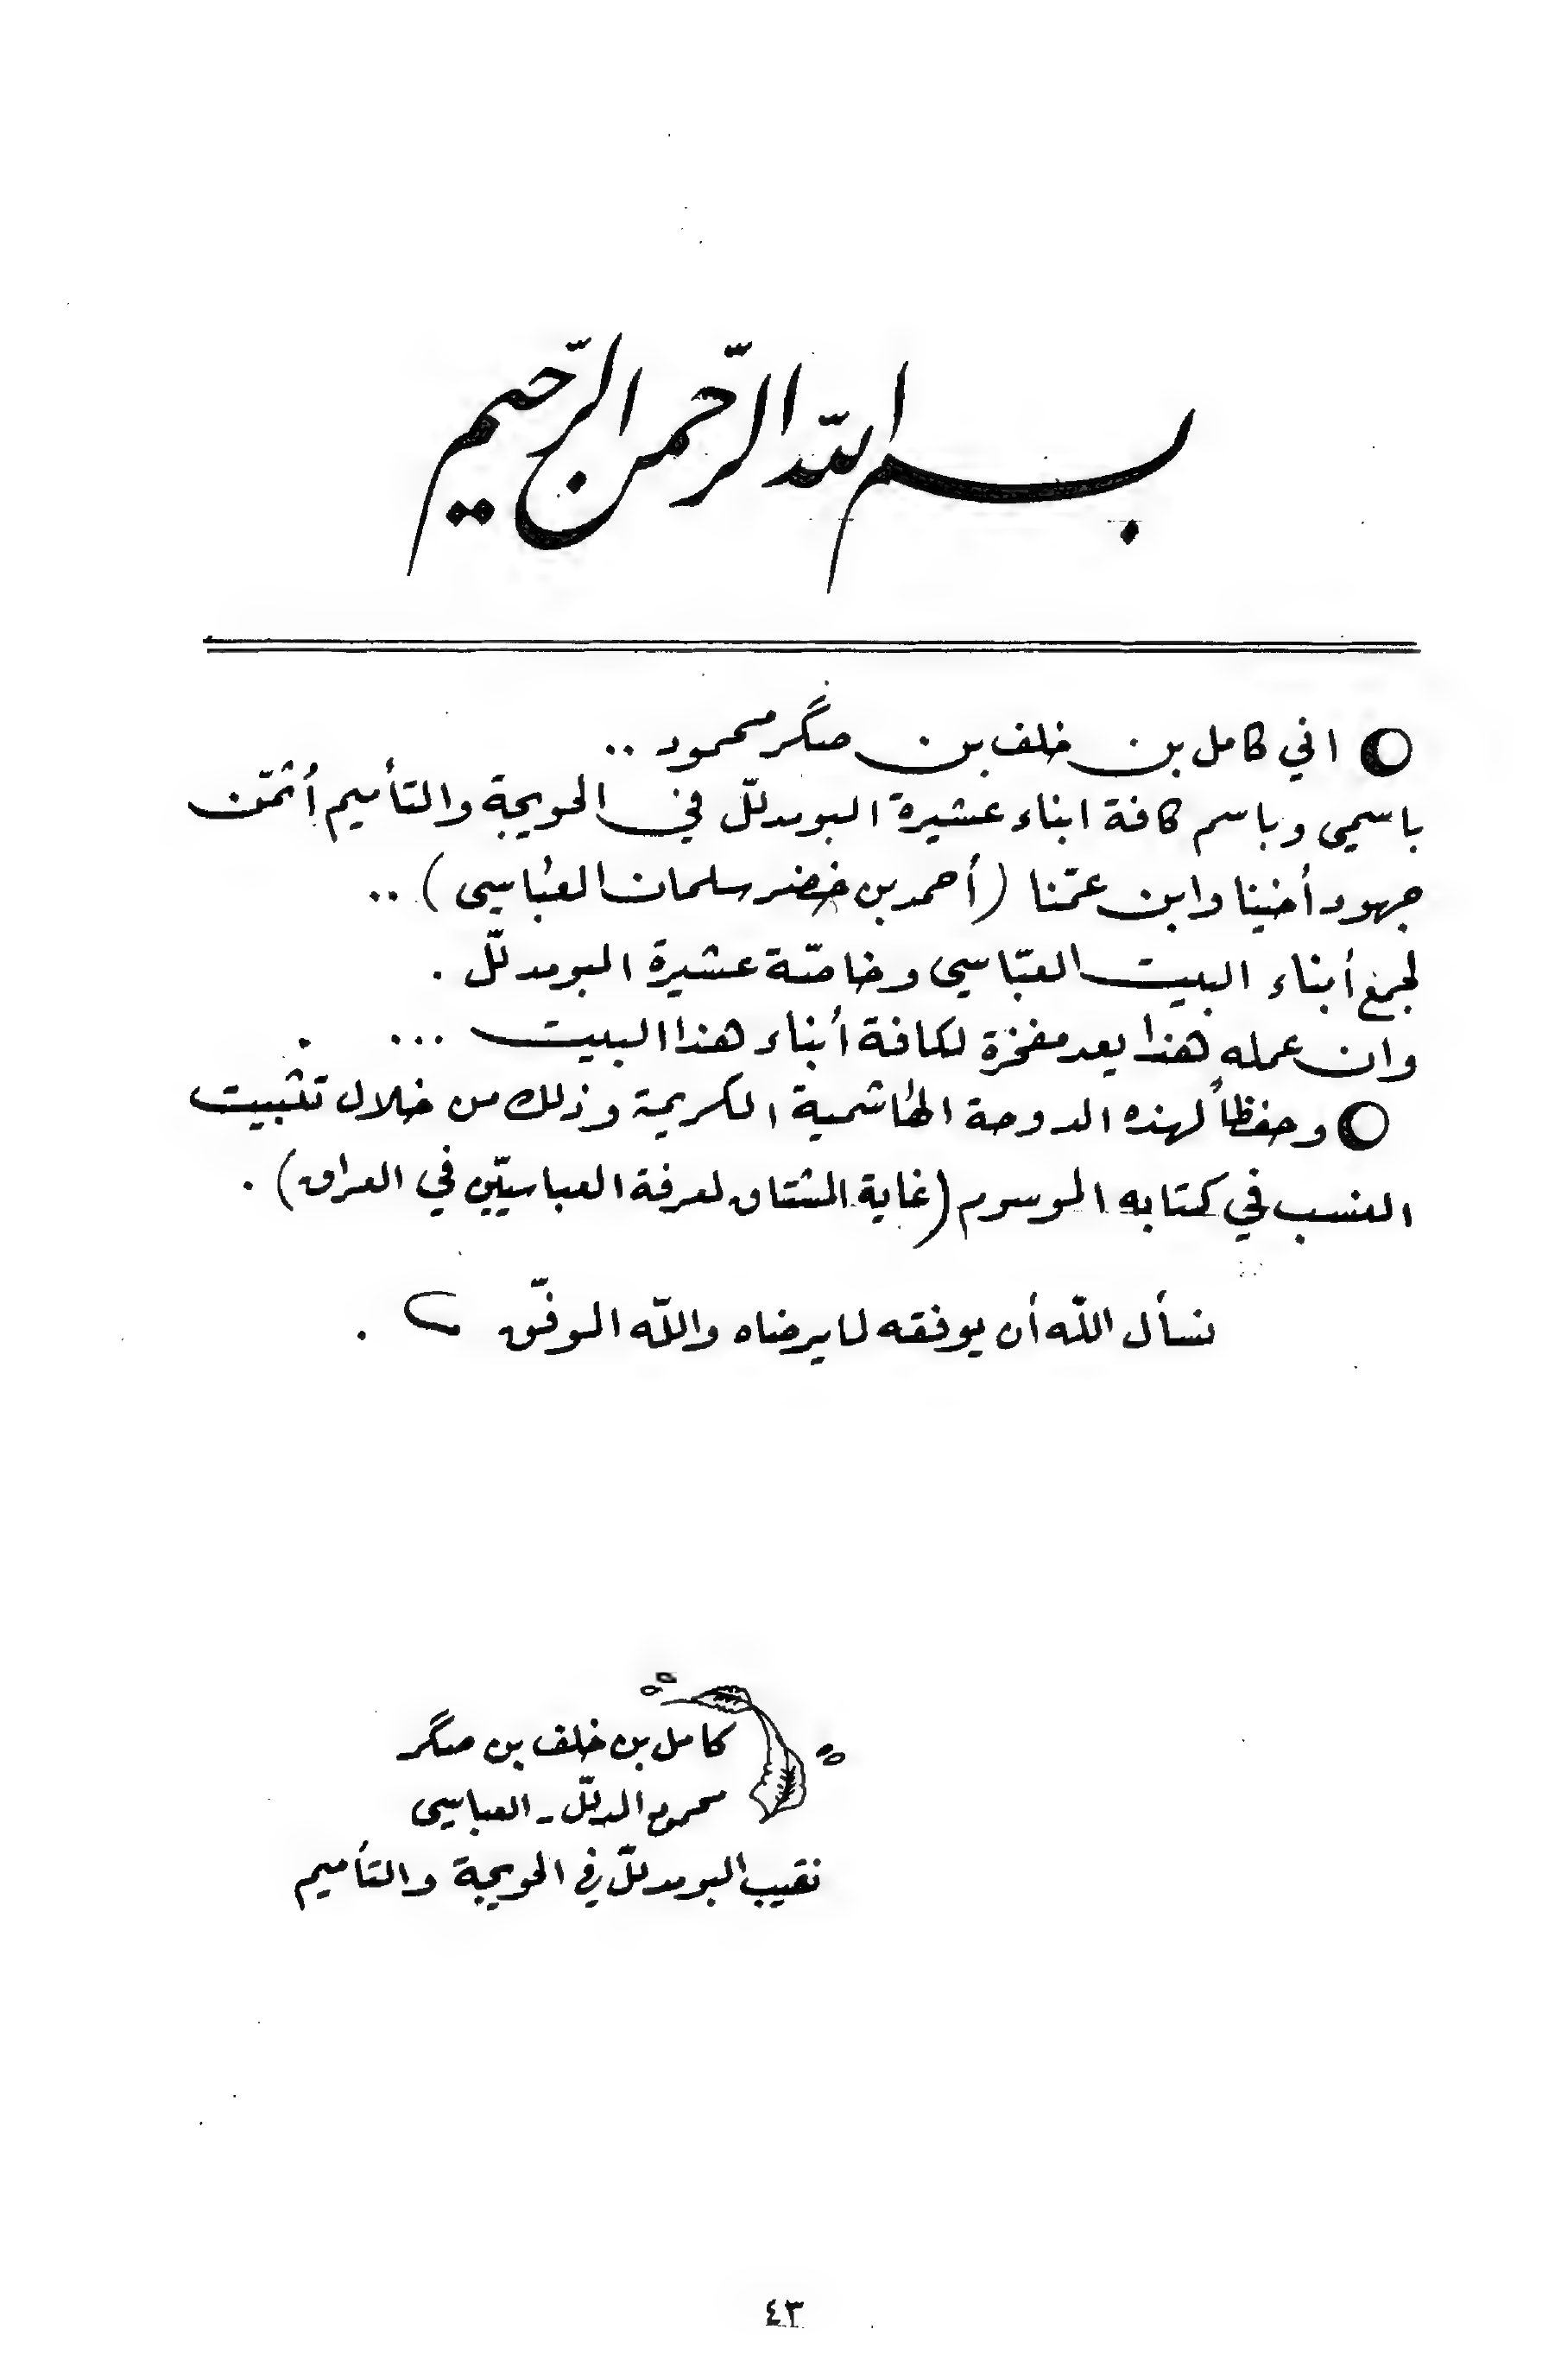 بسم الله الرّحمن الرّحيم
اني كامل بن خلف بن صگر محمود ..
باسمي وباسم كافة ابناء عشيرة البومدلّل في الحويجة والتأميم أُثمّن
جهود أخينا وابن عمّنا (أحمد بن خضر سلمان العبّاسي) ..
لجمع أبناء البيت العبّاسي وخاصّة عشيرة البومدلّل .
وان عمله هذا يعد مفخرة لكافة أبناء هذا البيت ...
وحفظاً لهذه الدوحة الهاشمية الكريمة وذلك من خلال تثبيت
النسب في كتابه الموسوم (غاية المشتاق لمعرفة العباسيّين في العراق) .
نسأل اللّه أن يوفقه لما يرضاه واللّه الموفّق .
كامل بن خلف بن صگر
محمود المدلّل - العباسي
نقيب البومدلّل في الحويجة والتأميم
٤٣